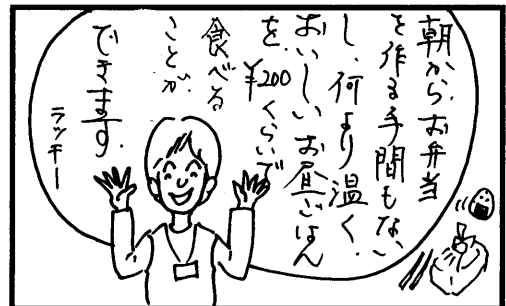 朝から、お弁当
を作る手間もない
し、何より温く
おいしいお昼ごはん
を、¥200くらいで
食べる
ことが、
できます。
ラッキー